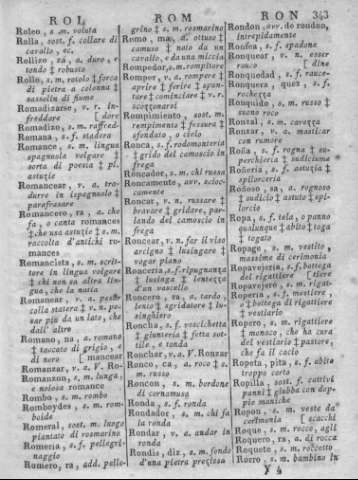 ROL
ROM
RON 343
Roleo, s m. voluta
Rolla, sost. f. collare di
cavallo, ec.
Rollizo, za, a. duro, e
tondo ‡ robusto
Rollo, s m. rotolo ‡ forca
di pietra a colonna ‡
sasselin di fiume
Romadizarse, v. r. in-
freddare
Romadizo, s m. raffred-
dore
Romana, s. f. stadera
Romance, s m. lingua
spagnuola volgare ‡
sorta di poesia ‡ pl.
astuzie
Romancear, v. a. tra-
durre in ispagnuolo ‡
parafrasare
Romancero, ra, a. che
fa, o canta romances
‡ che usa astuzie ‡ s m.
raccolta d'antichi ro-
mances
Romancista, s m. scrit-
tore in lingua volgare
‡ chi non sa altra lin-
gua, che la natia
Romanear, v. a. pesar
colla stadera ‡ v. n. pe-
sar più da un lato, che
dall' altro
Romano, na, a. romano
‡ toccato di grigio, e
di nero
Romanzar, v. a. V. Ro-
mancear
Romanzon, s m. lunga,
e nojosa romance
Rombo, s m. rombo
Romboydes, s m. rom-
boide
Romeral, sost. m. luogo
piantato di rosmarino
Romeria, s. f. pellegri-
naggio
Romero, ra, add. pelle-
grino ‡ s m. rosmarino
Romo, ma, a. ottuso ‡
camuso ‡ nato da un
cavallo, e da una miccia
Rompedor, s m. rompitore
Romper, v. a. rompere ‡
aprire ‡ ferire ‡ spun-
tare ‡ cominciare ‡ v. r.
scozzonarsi
Rompimiento, sost. m.
rompimento ‡ fessura ‡
sfondato, o cielo
Ronca, s. f. rodomonteria
‡ grido del camoscio in
frega
Roncador, s m. chi russa
Roncamente, avv. scioc-
camente
Roncar, v. n. russare ‡
bravare ‡ gridare, par-
lando del camoscio in
frega
Roncear, v. n. far il viso
arcigno ‡ lusingare ‡
vogar piano
Roncería, s. f. ripugnanza
‡ lusinga ‡ lentezza
d'un vascello
Roncero, ra, a. tardo,
lento ‡ sgridatore ‡ lu-
singhiero
Roncha, s. f. vescichetta
‡ giunteria ‡ fetta sot-
tile, e tonda
Ronchar, v. a. V. Ronzar
Ronco, ca, a. roco ‡ s.
m. russo
Roncon, s m. bordone
di cornamusa
Ronda, s. f. ronda
Rondador, s m. chi fa
la ronda
Rondar, v. a. andar in
ronda
Rondis, diz, s m. fondo
d'una pietra preziosa
Rondon, avv. de rondon,
intrepidamente
Ronfea, s. f. spadone
Ronquear, v. n. esser
rauco
Ronquedad, s. f. rauce-
dine
Ronquera, quez, s. f.
fiochezza
Ronquido, s m. russo ‡
suono roco
Ronzal, s m. cavezza
Ronzar, v. a. masticar
con rumore
Roña, s. f. rogna ‡ su-
perchieria ‡ sudiciume
Roñería, s. f. astuzia ‡
spilorceria
Roñoso, sa, a. rognoso
‡ sudicio ‡ astuto ‡ spi-
lorcio
Ropa, s. f. tela, o panno
qualunque ‡ abito ‡ toga
‡ togato
Ropage, s m. vestito,
massime di cerimonia
Ropavejería, s. f. bottega
del rigattiere
Ropavejero, s m. rigat-
tiere
Ropería, s. f. mestiere,
o bottega di rigattiere ‡
vestiario
Ropero, s m. rigattiere
‡ monaco, che ha cura
del vestiario ‡ pastore,
che fa il cacio
Ropeta, pita, s. f. abito
troppo corto
Ropilla, sost. f. cattivi
panni ‡ giubba con dop-
pie maniche
Ropon, s m. veste da
cerimonia
Roque, s m. rocco, agli scacchi
Roquero, ra, a. di rocca
Roquete, s m. roccetto
Rorro, s m. bambino in
Y 4